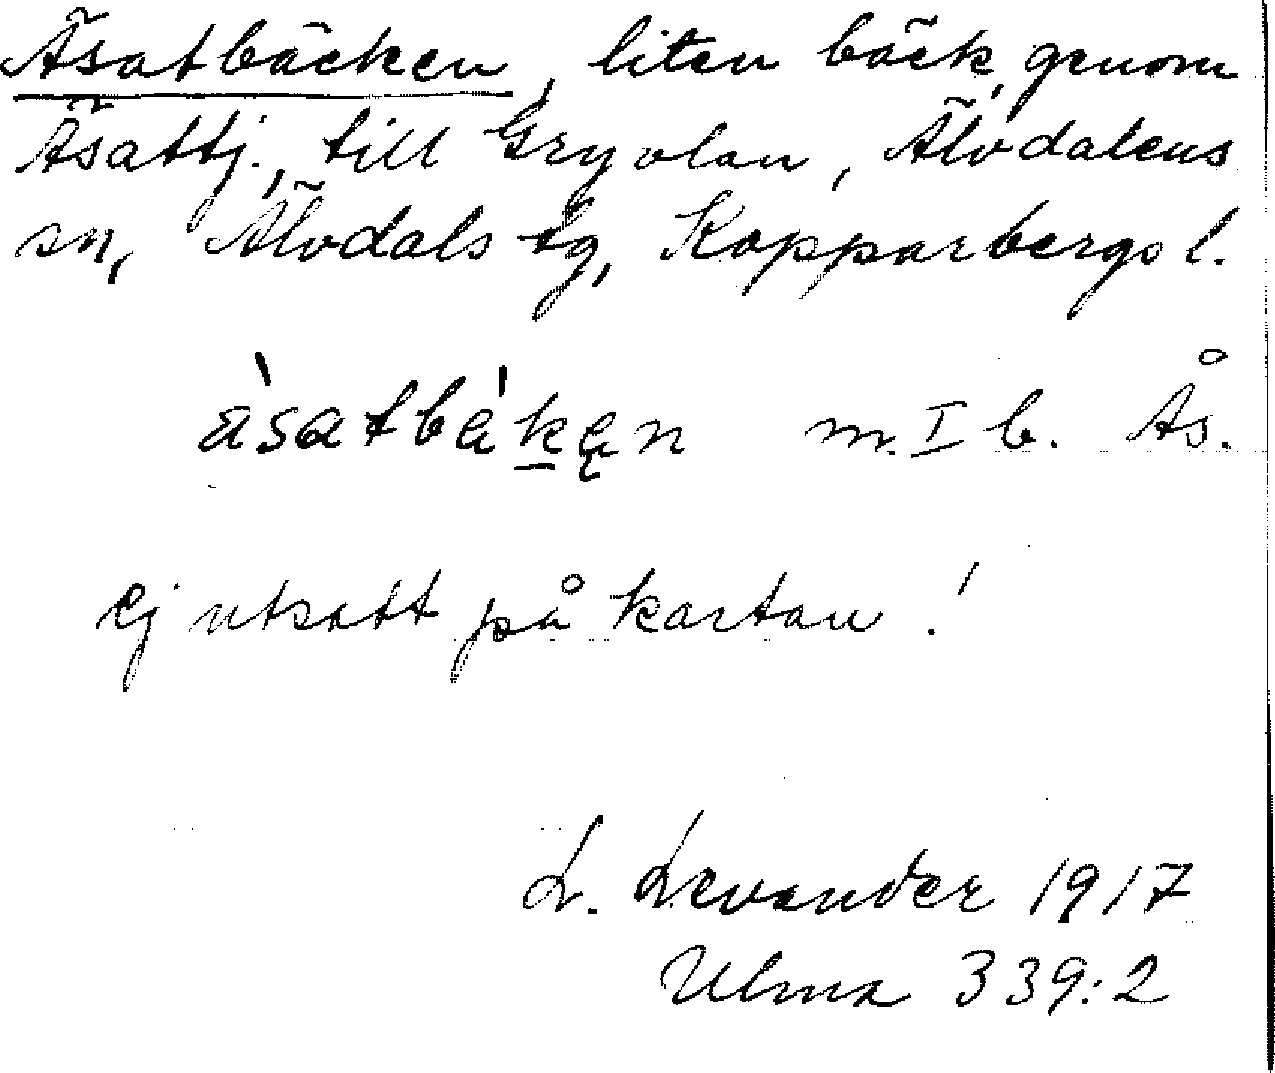 Äsatbäcken, liten bäck, genom
Äsattj., till Gryvlan, Älvdalens
sn, Älvdals tg, Kopparbergs l.
ä̀satbä́kęn m. I b. Ås.
ej utsatt på kartan!
L. Levander 1917
Ulma 339:2